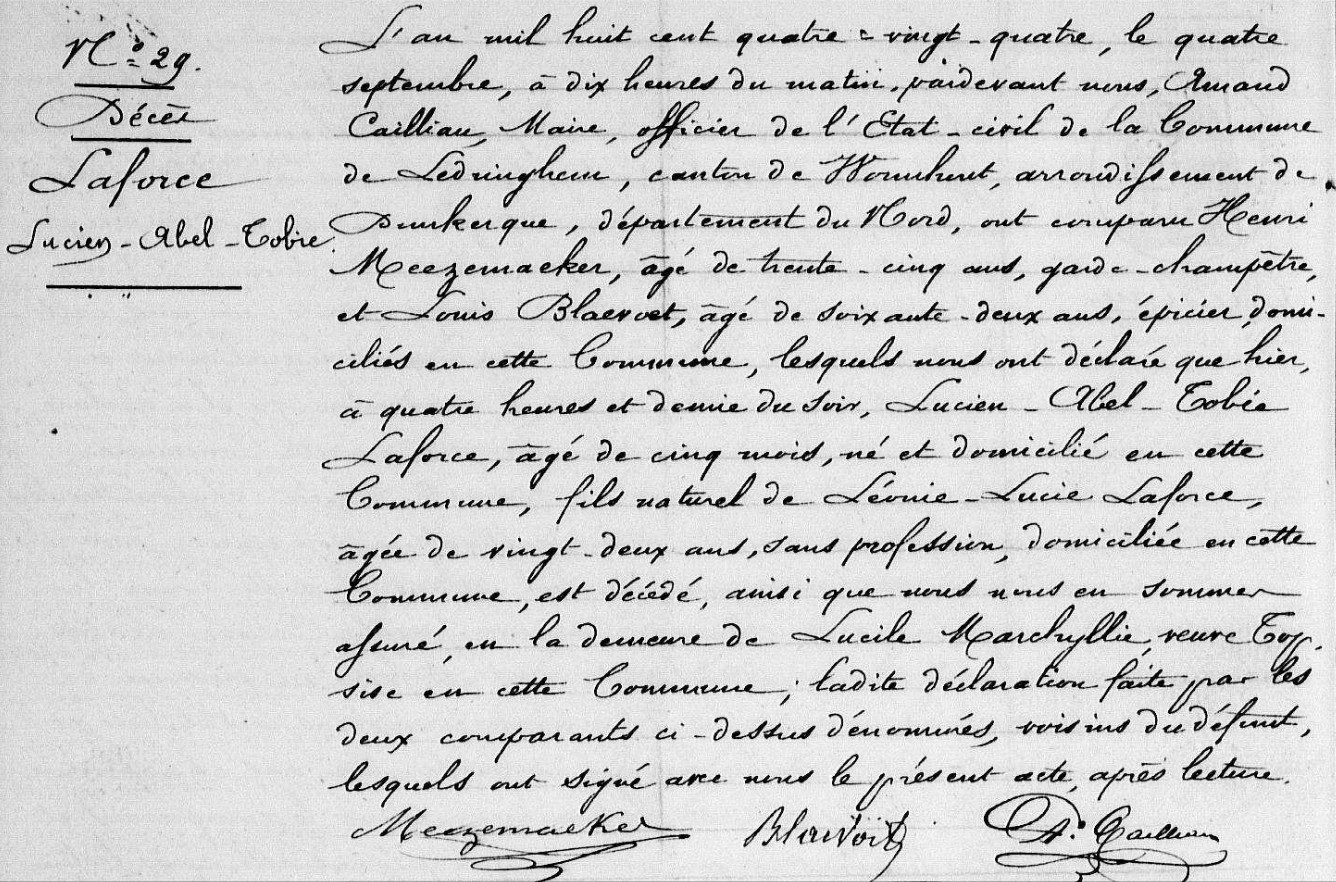 N° 29.
Décès
Laforce
Lucien-Abel-Tobie
L'an mil huit cent quatre-vingt-quatre, le quatre
septembre, à dix heures du matin, pardevant nous, Amand
Cailliau, Maire, officier de l'Etat-civil de la Commune
de Ledringhem, canton de Wormhout, arrondissement de
Dunkerque, département du Nord, ont comparu Henri
Meezemaeker, âgé de trente-cinq ans, garde-champêtre,
et Louis Blaevoet, âgé de soixante-deux ans, épicier, domi-
ciliés en cette Commune, lesquels nous ont déclaré que hier,
à quatre heures et demie du soir, Lucien-Abel-Tobie
Laforce, âgé de cinq mois, né et domicilié en cette
Commune, fils naturel de Léonie-Lucie Laforce,
âgée de vingt-deux ans, sans profession, domiciliée en cette
Commune, est décédé, ainsi que nous nous en sommes
assuré, en la demeure de Lucile Marchyllie, veuve Top,
sise en cette Commune; ladite déclaration faite par les
deux comparants ci-dessus dénommés, voisins du défunt,
lesquels ont signé avec nous le présent acte, après lecture.
Meezemaeker Blaevoet A. Cailliau